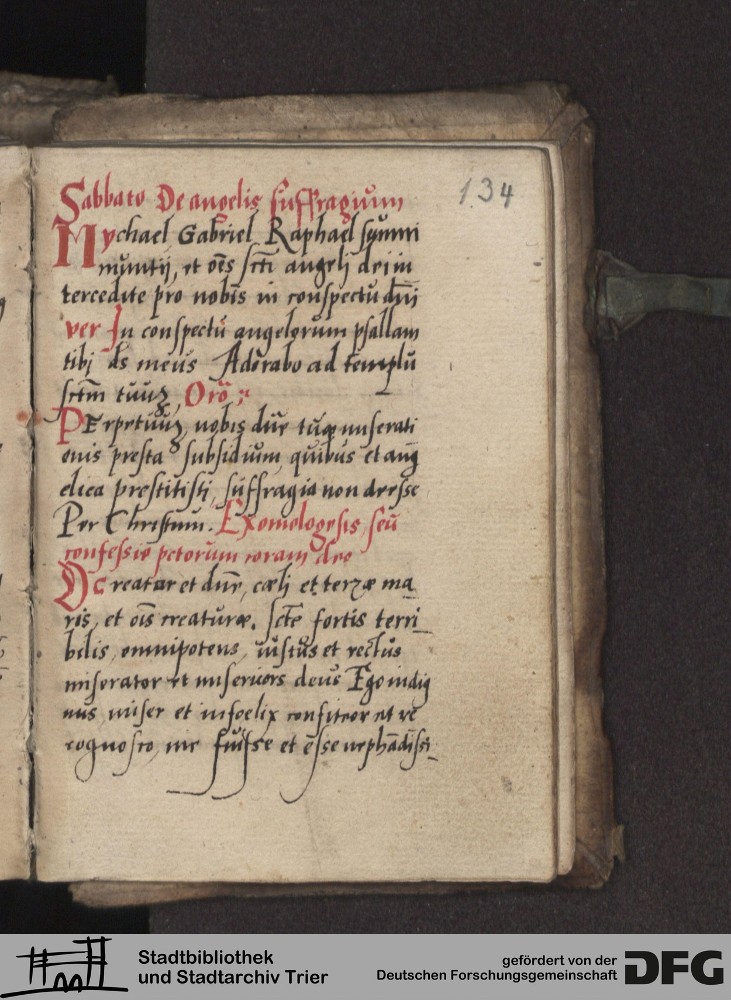 134
Sabbato De angelis suffragium
Mychael Gabriel Raphael summi
nuntij, et oēs scti angelj dei in
tercedite pro nobis in conspectu dn̄i
ver In conspectu angelorum psallam
tibj ds meus Adorabo ad templū
sctm tuuʒ Orō
PErpetuuʒ nobis dn̄e tuę miserati
onis presta subsidium, quibus et ang
elica prestitisti, suffragia non deesse
Per Christum. Exomologesis seu
confessio pctorum coram deo
Creator et dn̄e, cæli et terræ ma
ris, et ois creaturæ, scte fortis terri
bilis, omnipotens, iustus et rectus
miserator et misericors deus Ego indig
nus, miser et infoelix confiteor et re
cognosco, me fuisse et esse nephādissi
Stadtbibliothek
und Stadtarchiv Trier
gefördert von der
Deutschen Forschungsgemeinschaft
DFG